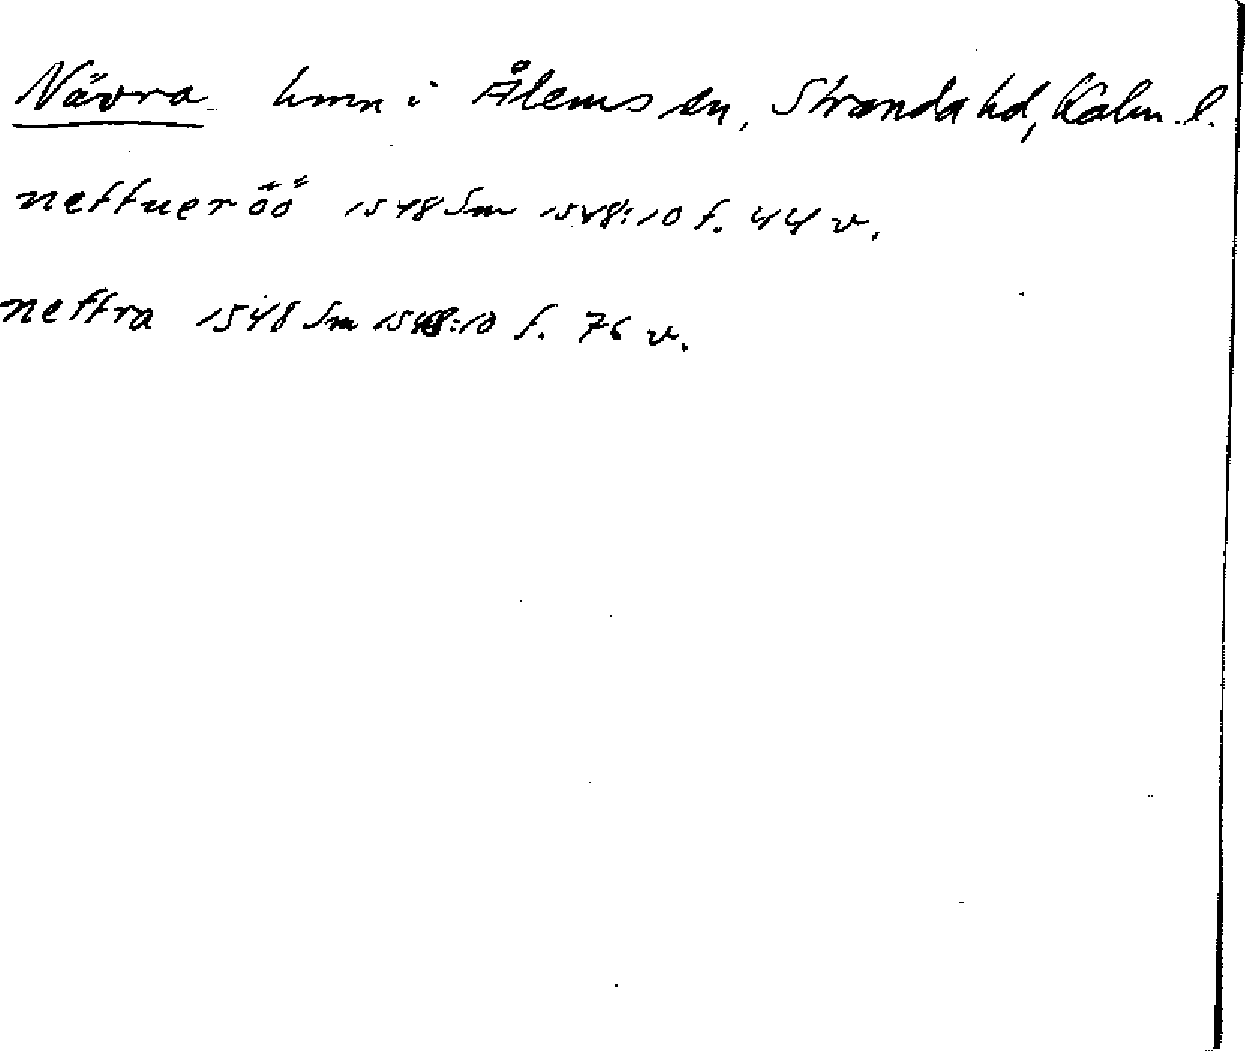 Nävra hmn i Ålems sn, Stranda hd, Kalm. l.
neffueröö 1548 Sm 1548:10 f. 44 v.
neffra 1548 Sm 1548:10 f. 76 v.